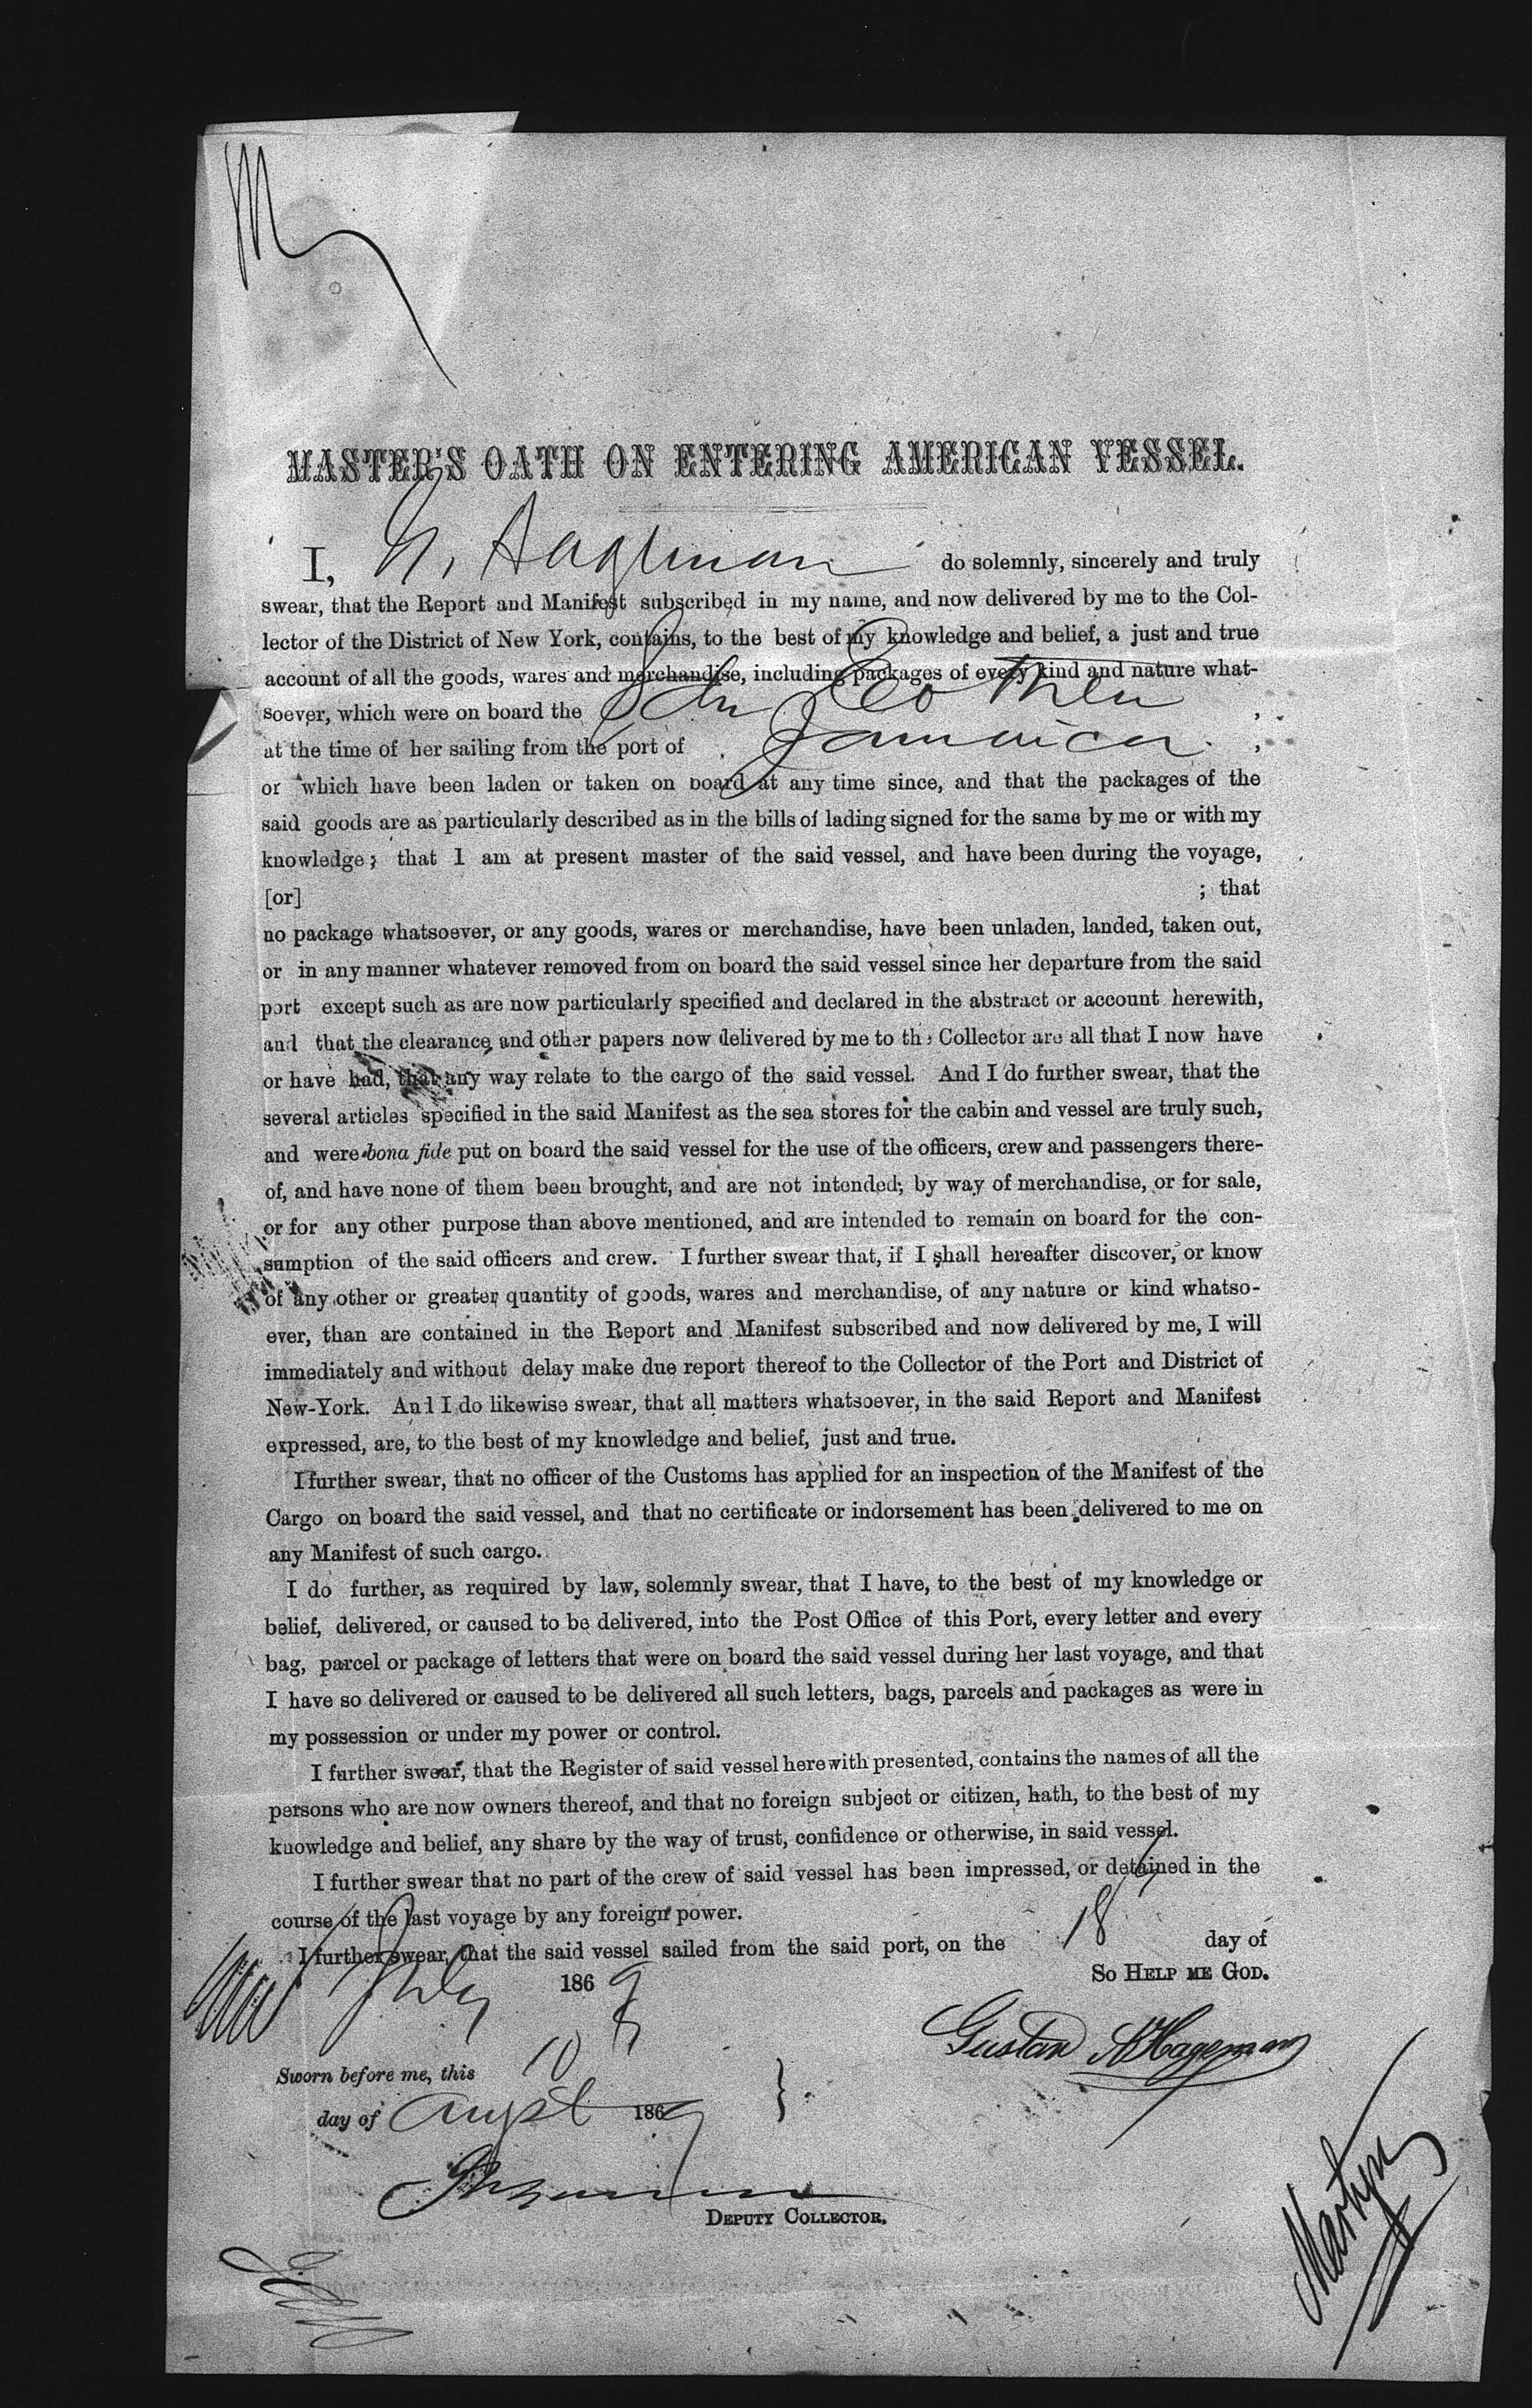 MASTER'S OATH ON ENTERING AMERICAN VESSEL.
I, do solemnly, sincerely and truly
swear, that the Report and Manifest subscribed in my name, and now delivered by me to the Col-
lector of the District of New York, contains, to the best of my knowledge and belief, a just and true
account of all the goods, wares and merchandise, including packages of every kind and nature what-
soever, which were on board the Schr Eothen ,
at the time of her sailing from the port of Jamaica ,
or which have been laden or taken on board at any time since, and that the packages of the
said goods are as particularly described as in the bills of lading signed for the same by me or with my
knowledge; that I am at present master of the said vessel, and have been during the voyage,
[or] ; that
no package whatsoever, or any goods, wares or merchandise, have been unladen, landed, taken out,
or in any manner whatever removed from on board the said vessel since her departure from the said
port except such as are now particularly specified and declared in the abstract or account herewith,
and that the clearance and other papers now delivered by me to the Collector are all that I now have
or have had, that any way relate to the cargo of the said vessel. And I do further swear, that the
several articles specified in the said Manifest as the sea stores for the cabin and vessel are truly such,
and were bona fide put on board the said vessel for the use of the officers, crew and passengers there-
of, and have none of them been brought, and are not intended, by way of merchandise, or for sale,
or for any other purpose than above mentioned, and are intended to remain on board for the con-
sumption of the said officers and crew. I further swear that, if I shall hereafter discover, or know
of any other or greater quantity of goods, wares and merchandise, of any nature or kind whatso-
ever, than are contained in the Report and Manifest subscribed and now delivered by me, I will
immediately and without delay make due report thereof to the Collector of the Port and District of
New-York. And I do likewise swear, that all matters whatsoever, in the said Report and Manifest
expressed, are, to the best of my knowledge and belief, just and true.
I further swear, that no officer of the Customs has applied for an inspection of the Manifest of the
Cargo on board the said vessel, and that no certificate or indorsement has been delivered to me on
any Manifest of such cargo.
I do further, as required by law, solemnly swear, that I have, to the best of my knowledge or
belief, delivered, or caused to be delivered, into the Post Office of this Port, every letter and every
bag, parcel or package of letters that were on board the said vessel during her last voyage, and that
I have so delivered or caused to be delivered all such letters, bags, parcels and packages as were in
my possession or under my power or control.
I further swear, that the Register of said vessel herewith presented, contains the names of all the
persons who are now owners thereof, and that no foreign subject or citizen, hath, to the best of my
knowledge and belief, any share by the way of trust, confidence or otherwise, in said vessel.
I further swear that no part of the crew of said vessel has been impressed, or detained in the
course of the last voyage by any foreign power.
I further swear, that the said vessel sailed from the said port, on the 18 day of
July 1869 So HELP ME GOD.
Gustav A Hageman
Sworn before me, this 10
day of August 1869
DEPUTY COLLECTOR.
Martyn